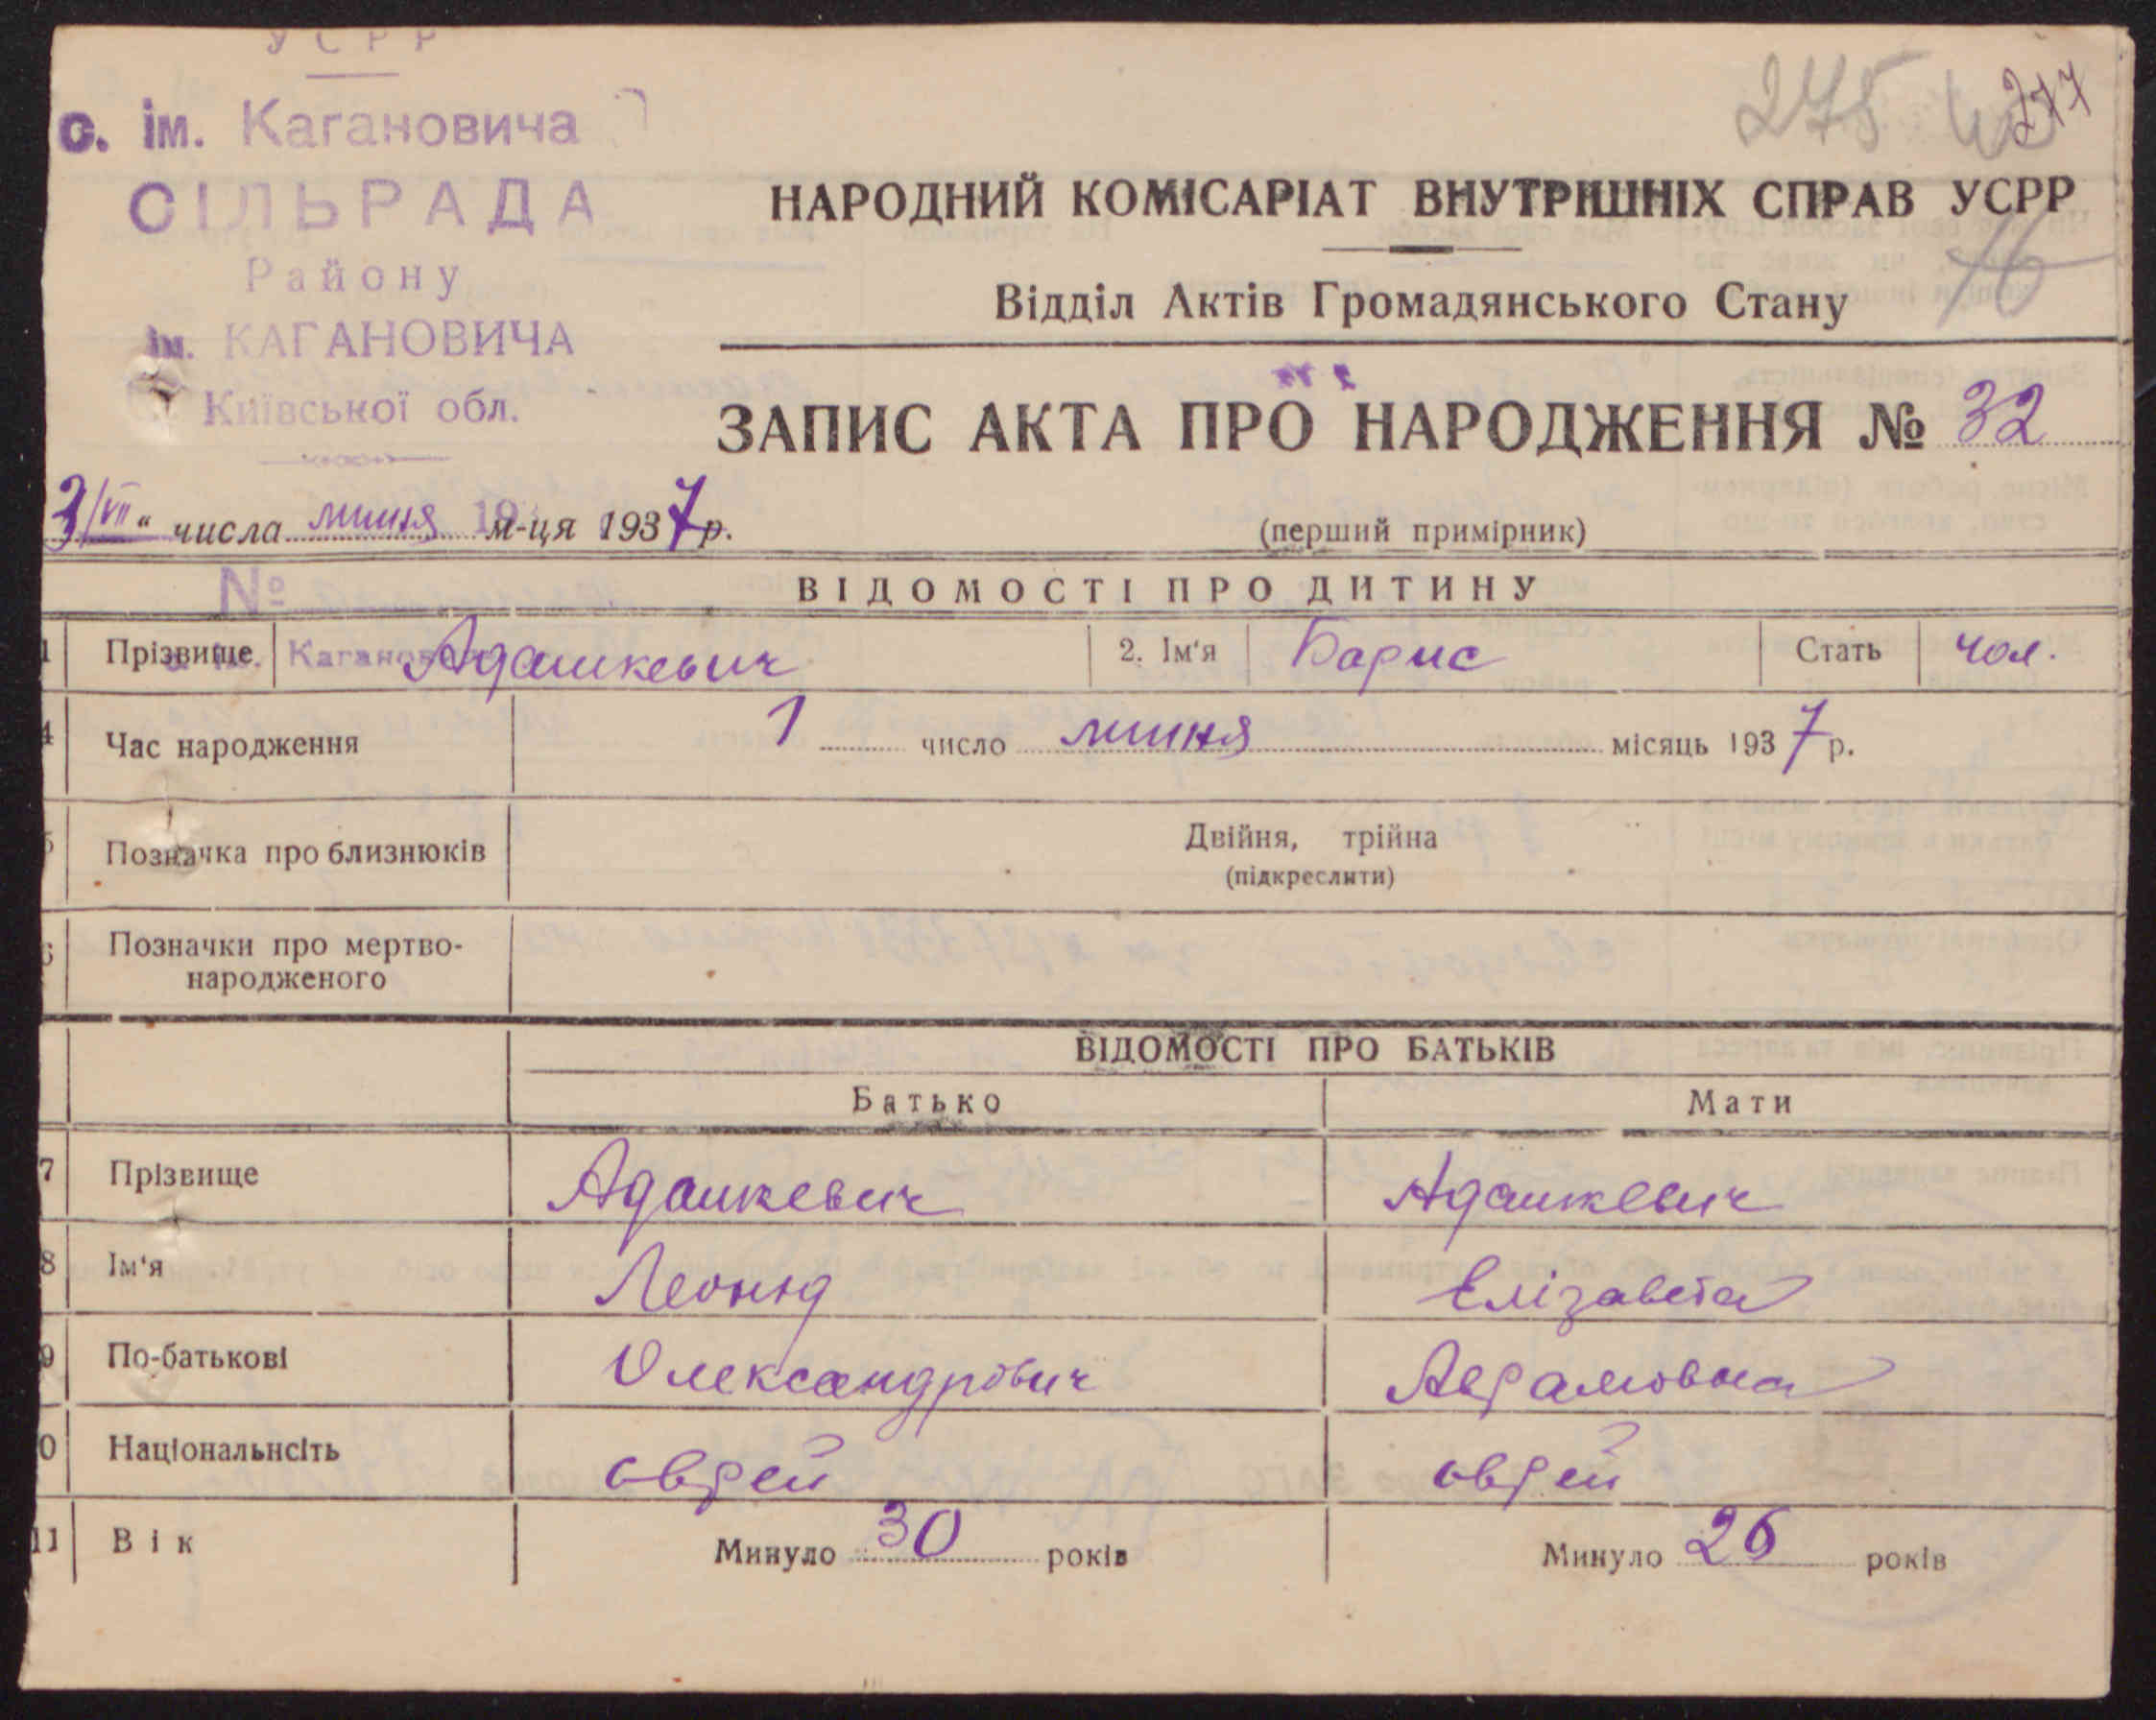 УСРР
с. ім. Кагановича
СІЛЬРАДА
Району
ім. КАГАНОВИЧА
Київської обл.
275
277
НАРОДНИЙ КОМІСАРІАТ ВНУТРІШНІХ СПРАВ УСРР
Відділ Актів Громадянського Стану
16
ЗАПИС АКТА ПРО НАРОДЖЕННЯ № 32
3/VII " числа липня 193 м-ця 1937 р.
(перший примірник)
№
ВІДОМОСТІ ПРО ДИТИНУ
1 Прізвище с. ім. Кагановича Адашкевич 2. Ім'я Барис Стать чол.
4 Час народження 1 число липня місяць 1937 р.
5 Позначка про близнюків Двійня, трійна
(підкреслити)
6 Позначки про мертво-
народженого
ВІДОМОСТІ ПРО БАТЬКІВ
Батько Мати
7 Прізвище Адашкевич Адашкевич
8 Ім'я Леонид Елізавета
9 По-батькові Олександрович Аврамовна
0 Національнсіть еврей еврей
11 Вік Минуло 30 років Минуло 26 років